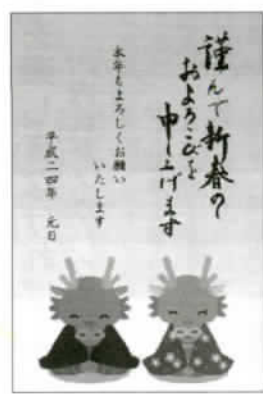 謹んで新春の
およろこびを
申し上げます
本年もよろしくお願い
いたします
平成二四年 元日